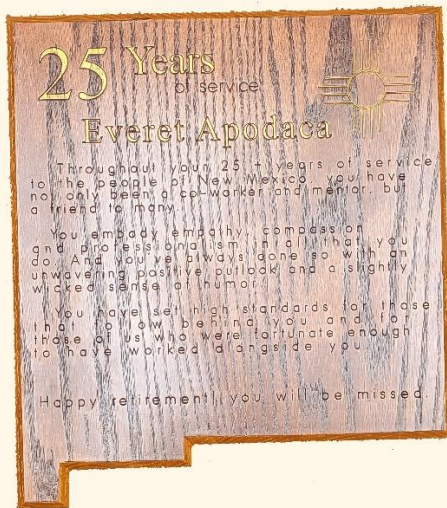 25 Years
of service
Everet Apodaca
Throughout your 25 + years of service
to the people of New Mexico, you have
not only been a co-worker and mentor, but
a friend to many.
You embody empathy, compassion
and professionalism in all that you
do. And you've always done so with an
unwavering positive outlook and a slightly
wicked sense of humor.
You have set high standards for those
that follow behind you and for
those of us who were fortunate enough
to have worked alongside you.
Happy retirement, you will be missed.